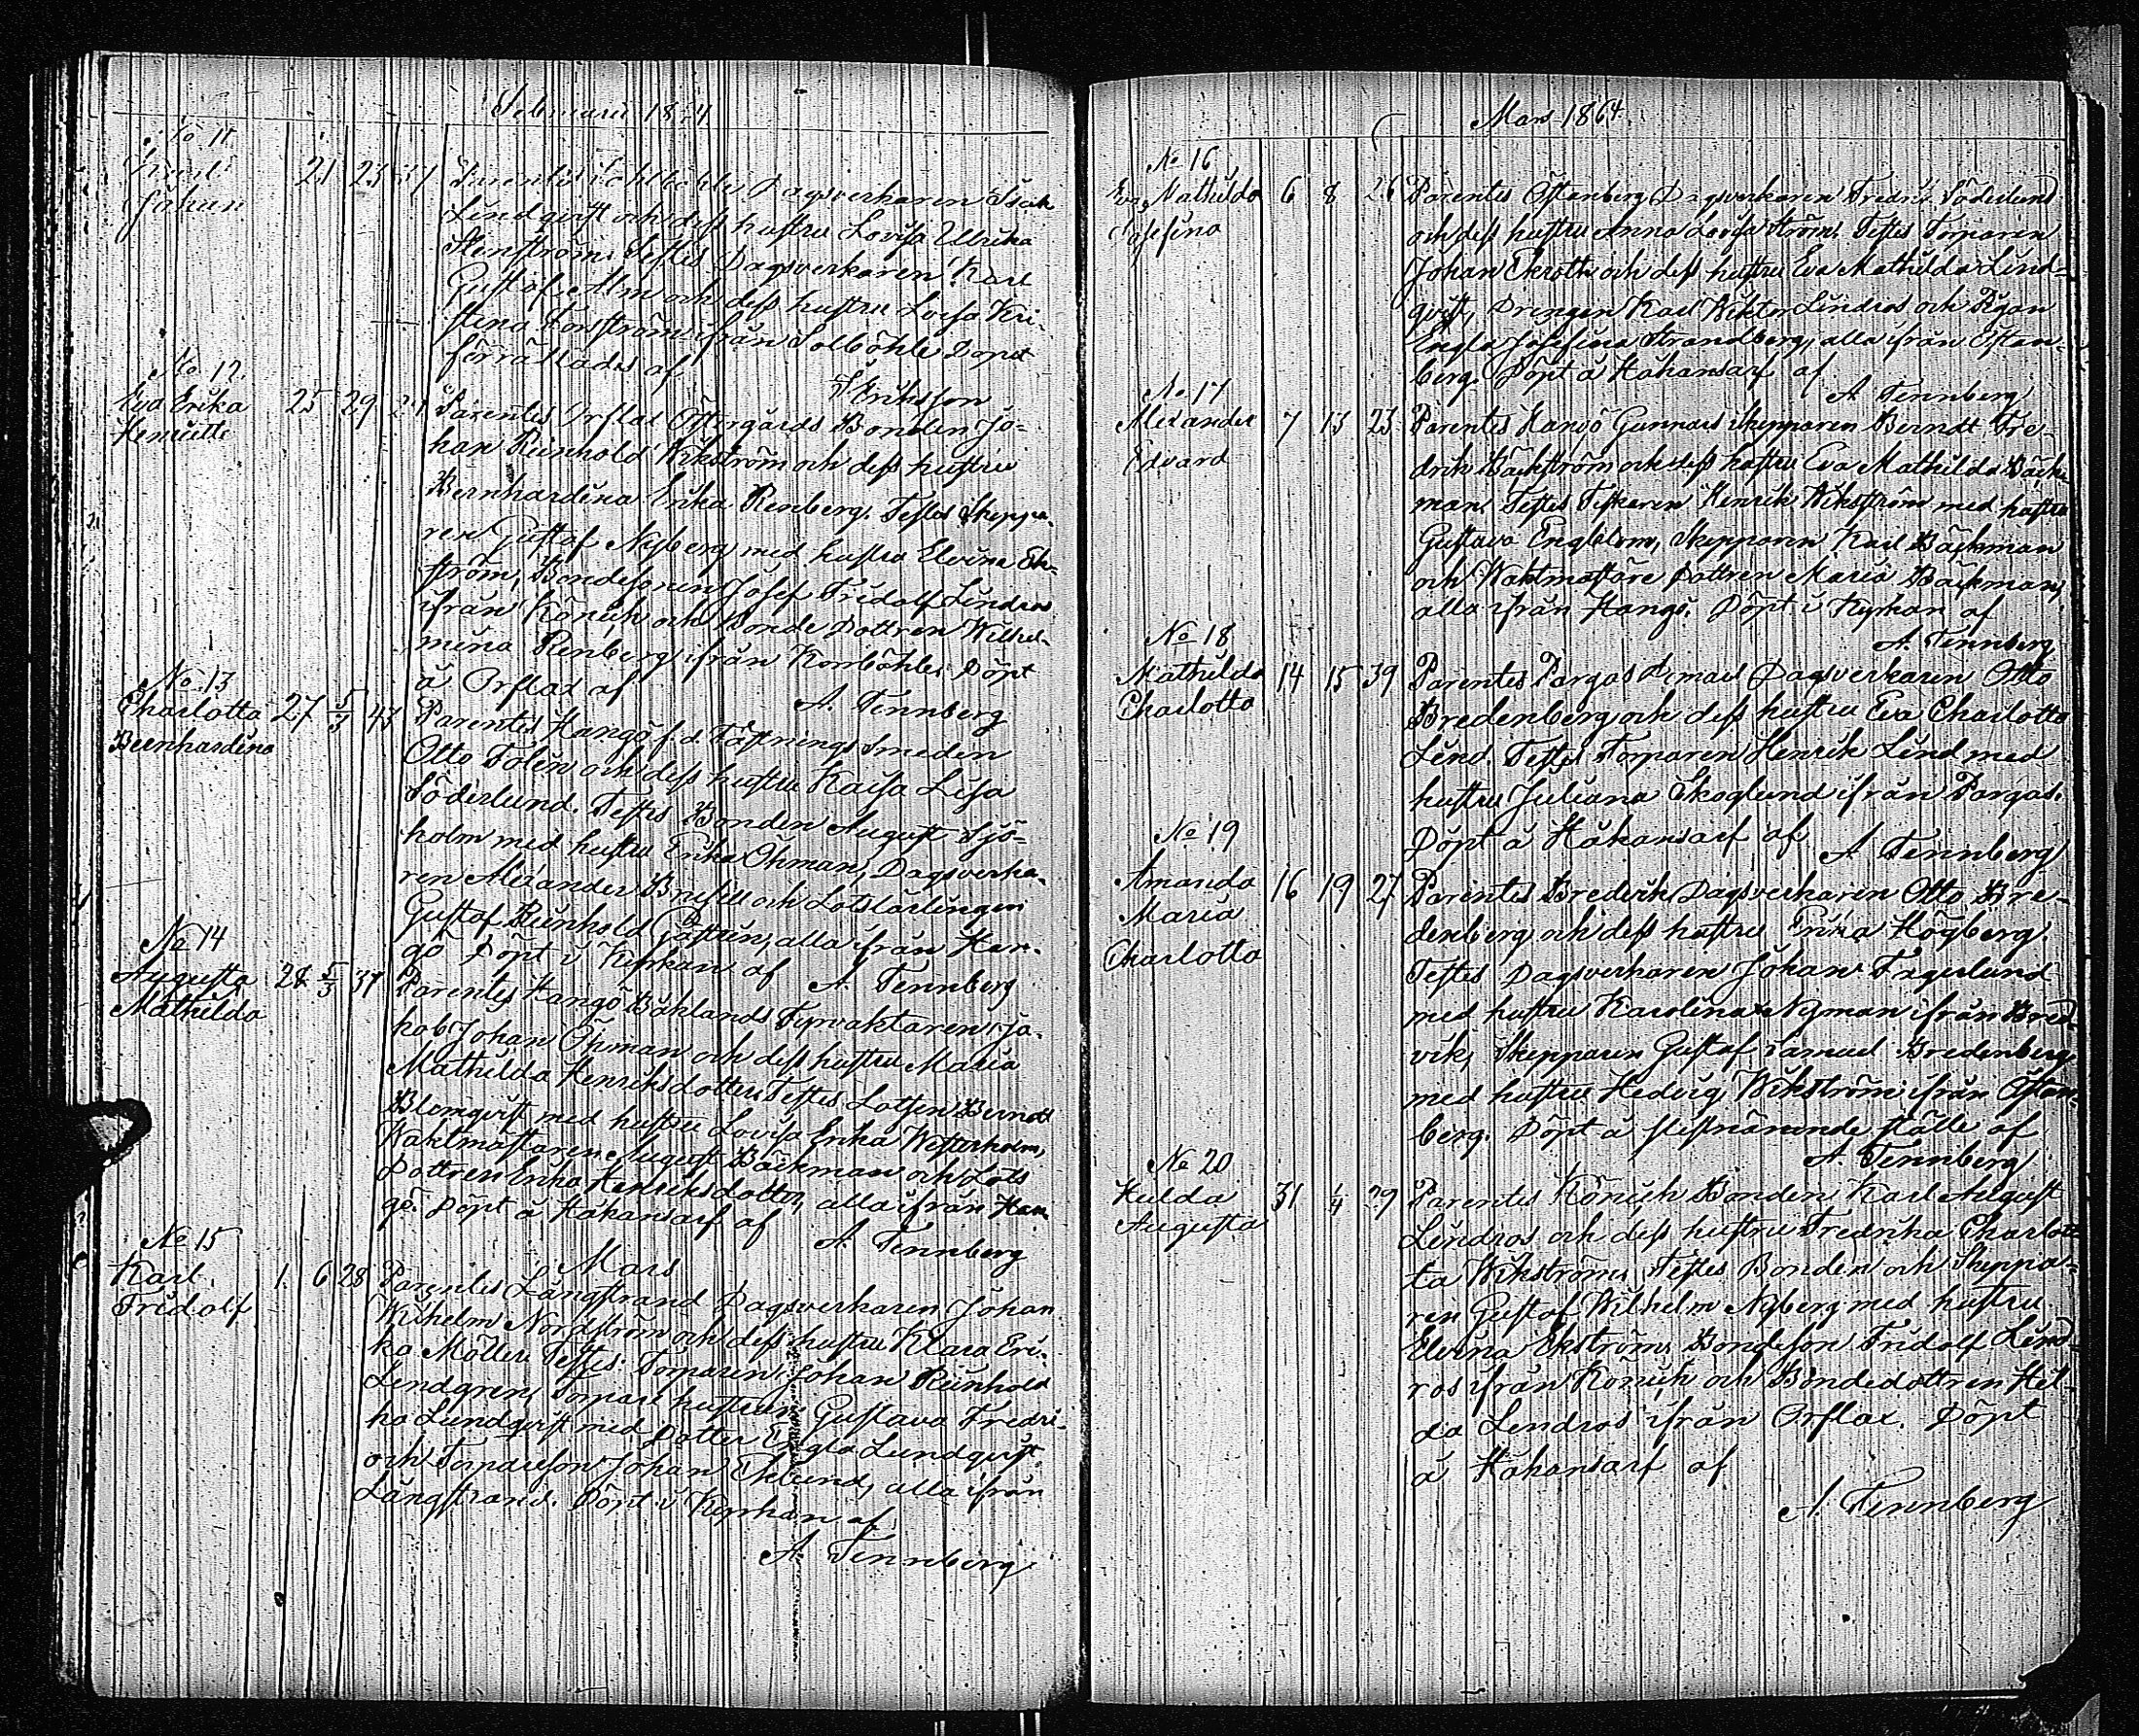 Februarii 1864
No 11
Karl
Johan
21 23 37
Parentes Dagsverkaren Isak
Lindqvist och dess hustru Lovisa Ulrika
Stenström. Testes Dagsverkaren Karl
Gustaf Alm och dess hustru Lovisa Kri-
stina Forsström ifrån Solböhle Döpt
förrättades af
Eriksson
No 12
Eva Erika
Henriette
25 29
Parentes Orslax Östergårds Bonden Jo-
han Reinhold Wikström och dess hustru
Bernhardina Erika Renberg. Testes Skeppa-
ren Gustaf Nyberg med hustru Elvina Ek-
ström, Bondesonen Josef Fridolf Lindros
ifrån Könick och Bonde Dottren Wilhel-
mina Renberg ifrån Konböhle. Döpt
å Orslax af
A. Tennberg
No 13
Charlotta
Bernhardina
27 5/3 43
Parentes Hangö f.d. Fästnings Smeden
Otto Folin och dess hustru Kaisa Lisa
Söderlund. Testes Bonden August Sjö-
holm med hustru Erika Öhman, Dagsverka-
ren Alexander och Lotslärlingen
Gustaf Reinhold alla ifrån Han-
gö Döpt i Kyrkan af
A. Tennberg
No 14
Augusta
Mathilda
28 5/3 37
Parentes Hangö Båklands Fyrvaktaren Ja-
kob Johan Öhman och dess hustru Maria
Mathilda Henriksdotter. Testes Lotsen Berndt
Blomqvist med hustru Lovisa Erika Westerholm,
Waktmästaren August Bäckman och Lots
Dottren Erika Henriksdotter, alla ifrån Han-
gö. Döpt å Håkansarf af
A. Tennberg
Mars
No 15
Karl
Fridolf
1 6 28
Parentes Långstrand Dagsverkaren Johan
Wilhelm Nordström och dess hustru Klara Eri-
ka Möller Testes Torparen Johan Reinhold
Lindgren, Torpare hustrun Gustava Fredri-
ka Lundqvist med Dotter Engla Lundqvist
och Torpareson Johan Eklund, alla ifrån
Långstrand. Döpt i Kyrkan af
A. Tennberg
Mars 1864
No 16
Eva Mathilda
Josefina
6 8 26
Parentes Östanberg Dagsverkaren Fredrik Söderlund
och dess hustru Anna Lovisa Ström. Testes Torparen
Johan Ekroth och dess hustru Eva Mathilda Lind-
qvist, Drengen Karl Wiktor Lindros och Pigan
Engla Josefina Strandberg, alla ifrån Östan-
berg. Döpt å Håkansarf af
A Tennberg
No 17
Alexander
Edvard
7 13 23
Parentes Hangö Gunnars Skepparen Berndt Fre-
drik Bäckström och dess hustru Eva Mathilda Bäck-
man. Testes Fiskaren Henrik Wikström med hustru
Gustava Engblom, Skepparen Karl Bäckman
och Waktmästare Dottren Maria Bäckman,
alla ifrån Hangö. Döpt i Kyrkan af
A. Tennberg
No 18
Mathilda
Charlotta
14 15 39
Parentes Pargas Dagsverkaren Otto
Bredenberg och dess hustru Eva Charlotta
Lind. Testes Torparen Henrik Lind med
hustru Juliana Skoglund ifrån Pargas.
Döpt å Håkansarf af
A Tennberg
No 19
Amanda
Maria
Charlotta
16 19 27
Parentes Bredvik Dagsverkaren Otto Bre-
denberg och dess hustru Erika Högberg.
Testes Dagsverkaren Johan Fagerlund
med hustru Karolina Nyman ifrån Bred-
vik, Skepparen Gustaf Samuel Bredenberg
med hustru Hedvig Wikström ifrån Östan-
berg. Döpt å sistnämnde ställe af
A. Tennberg
No 20
Hulda
Augusta
31 1/4 29
Parentes Könick Bonden Karl August
Lindros och dess hustru Fredrika Charlot-
ta Wikström. Testes Bonden och Skeppa-
ren Gustaf Wilhelm Nyberg med hustru
Elvina Ekström, Bondeson Fridolf Lind-
ros ifrån Könick och Bondedottren Hil-
da Lindros ifrån Orslax. Döpt
å Håkansarf af
A. Tennberg